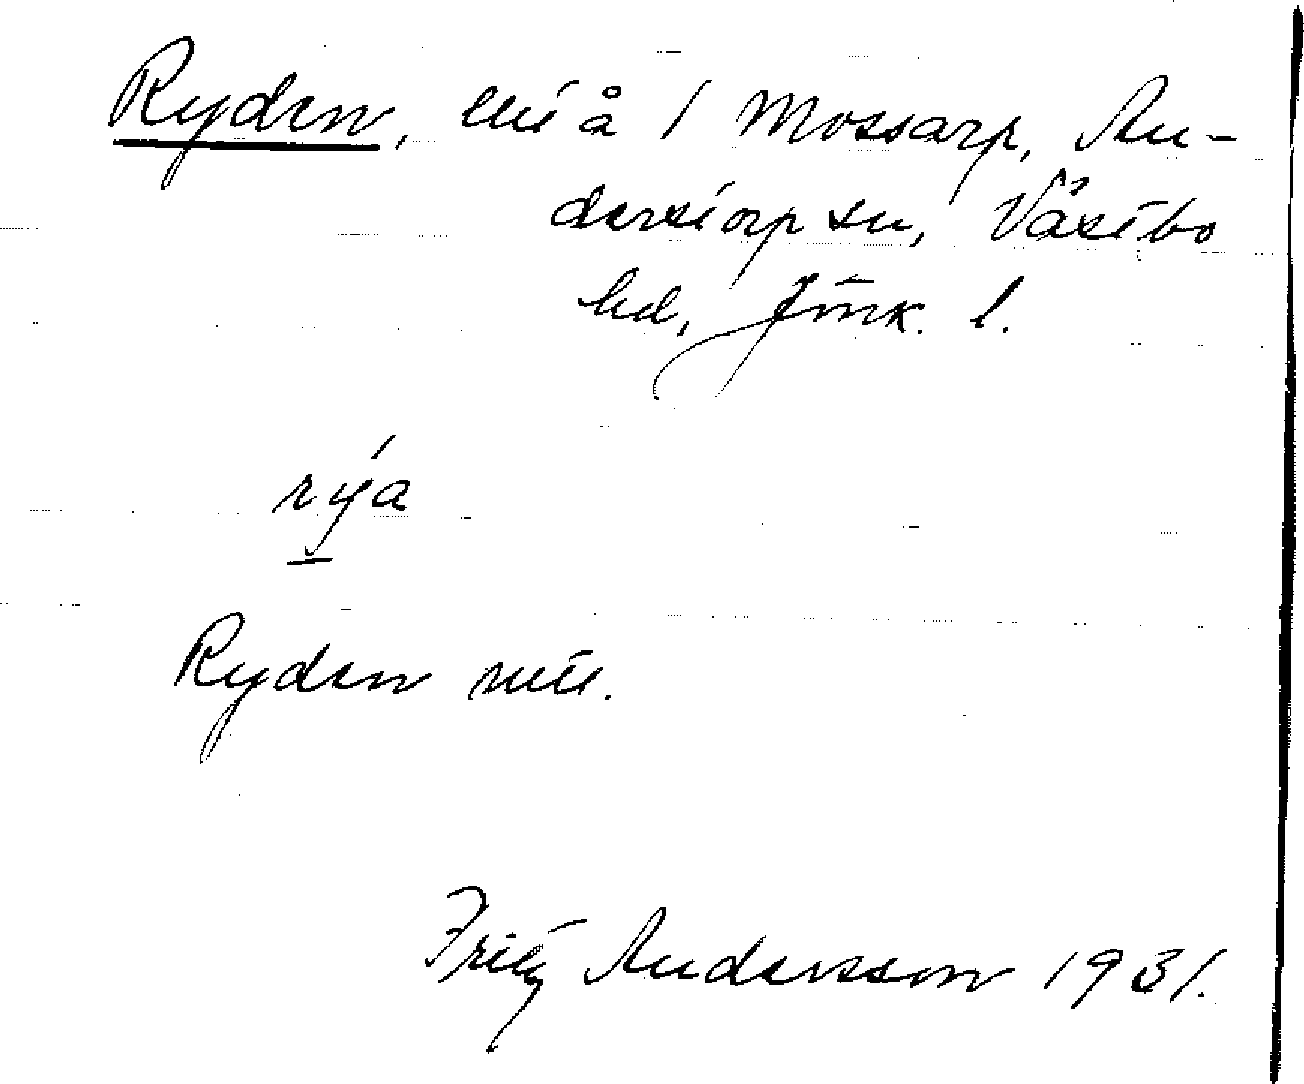 Ryden, utj å 1 Mossarp, An-
derstorp sn, Västbo
hd, Jönk. l.
rýa
Ryden
Fritz Andersson 1931.